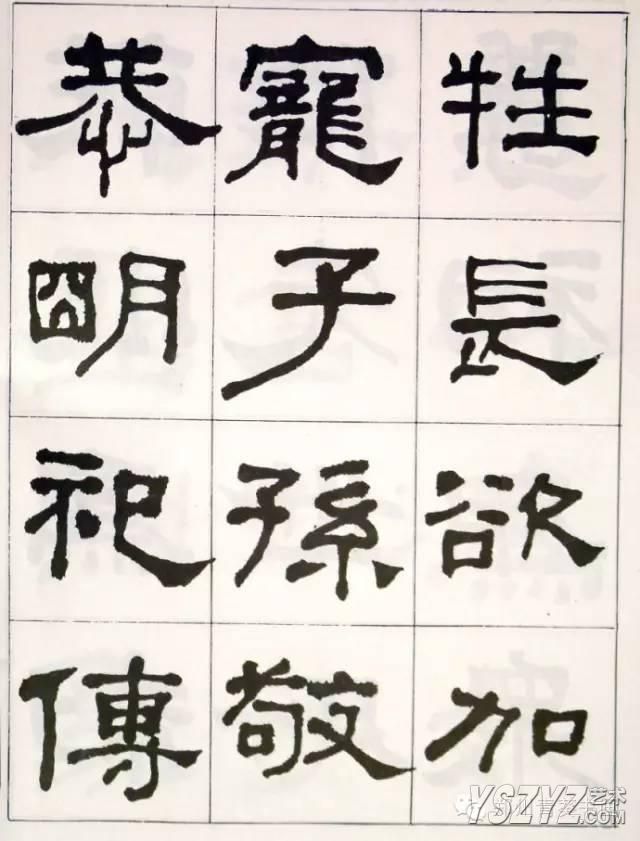 牲長欲加
寵子孫敬
恭明祀傳
YSZYZ艺术